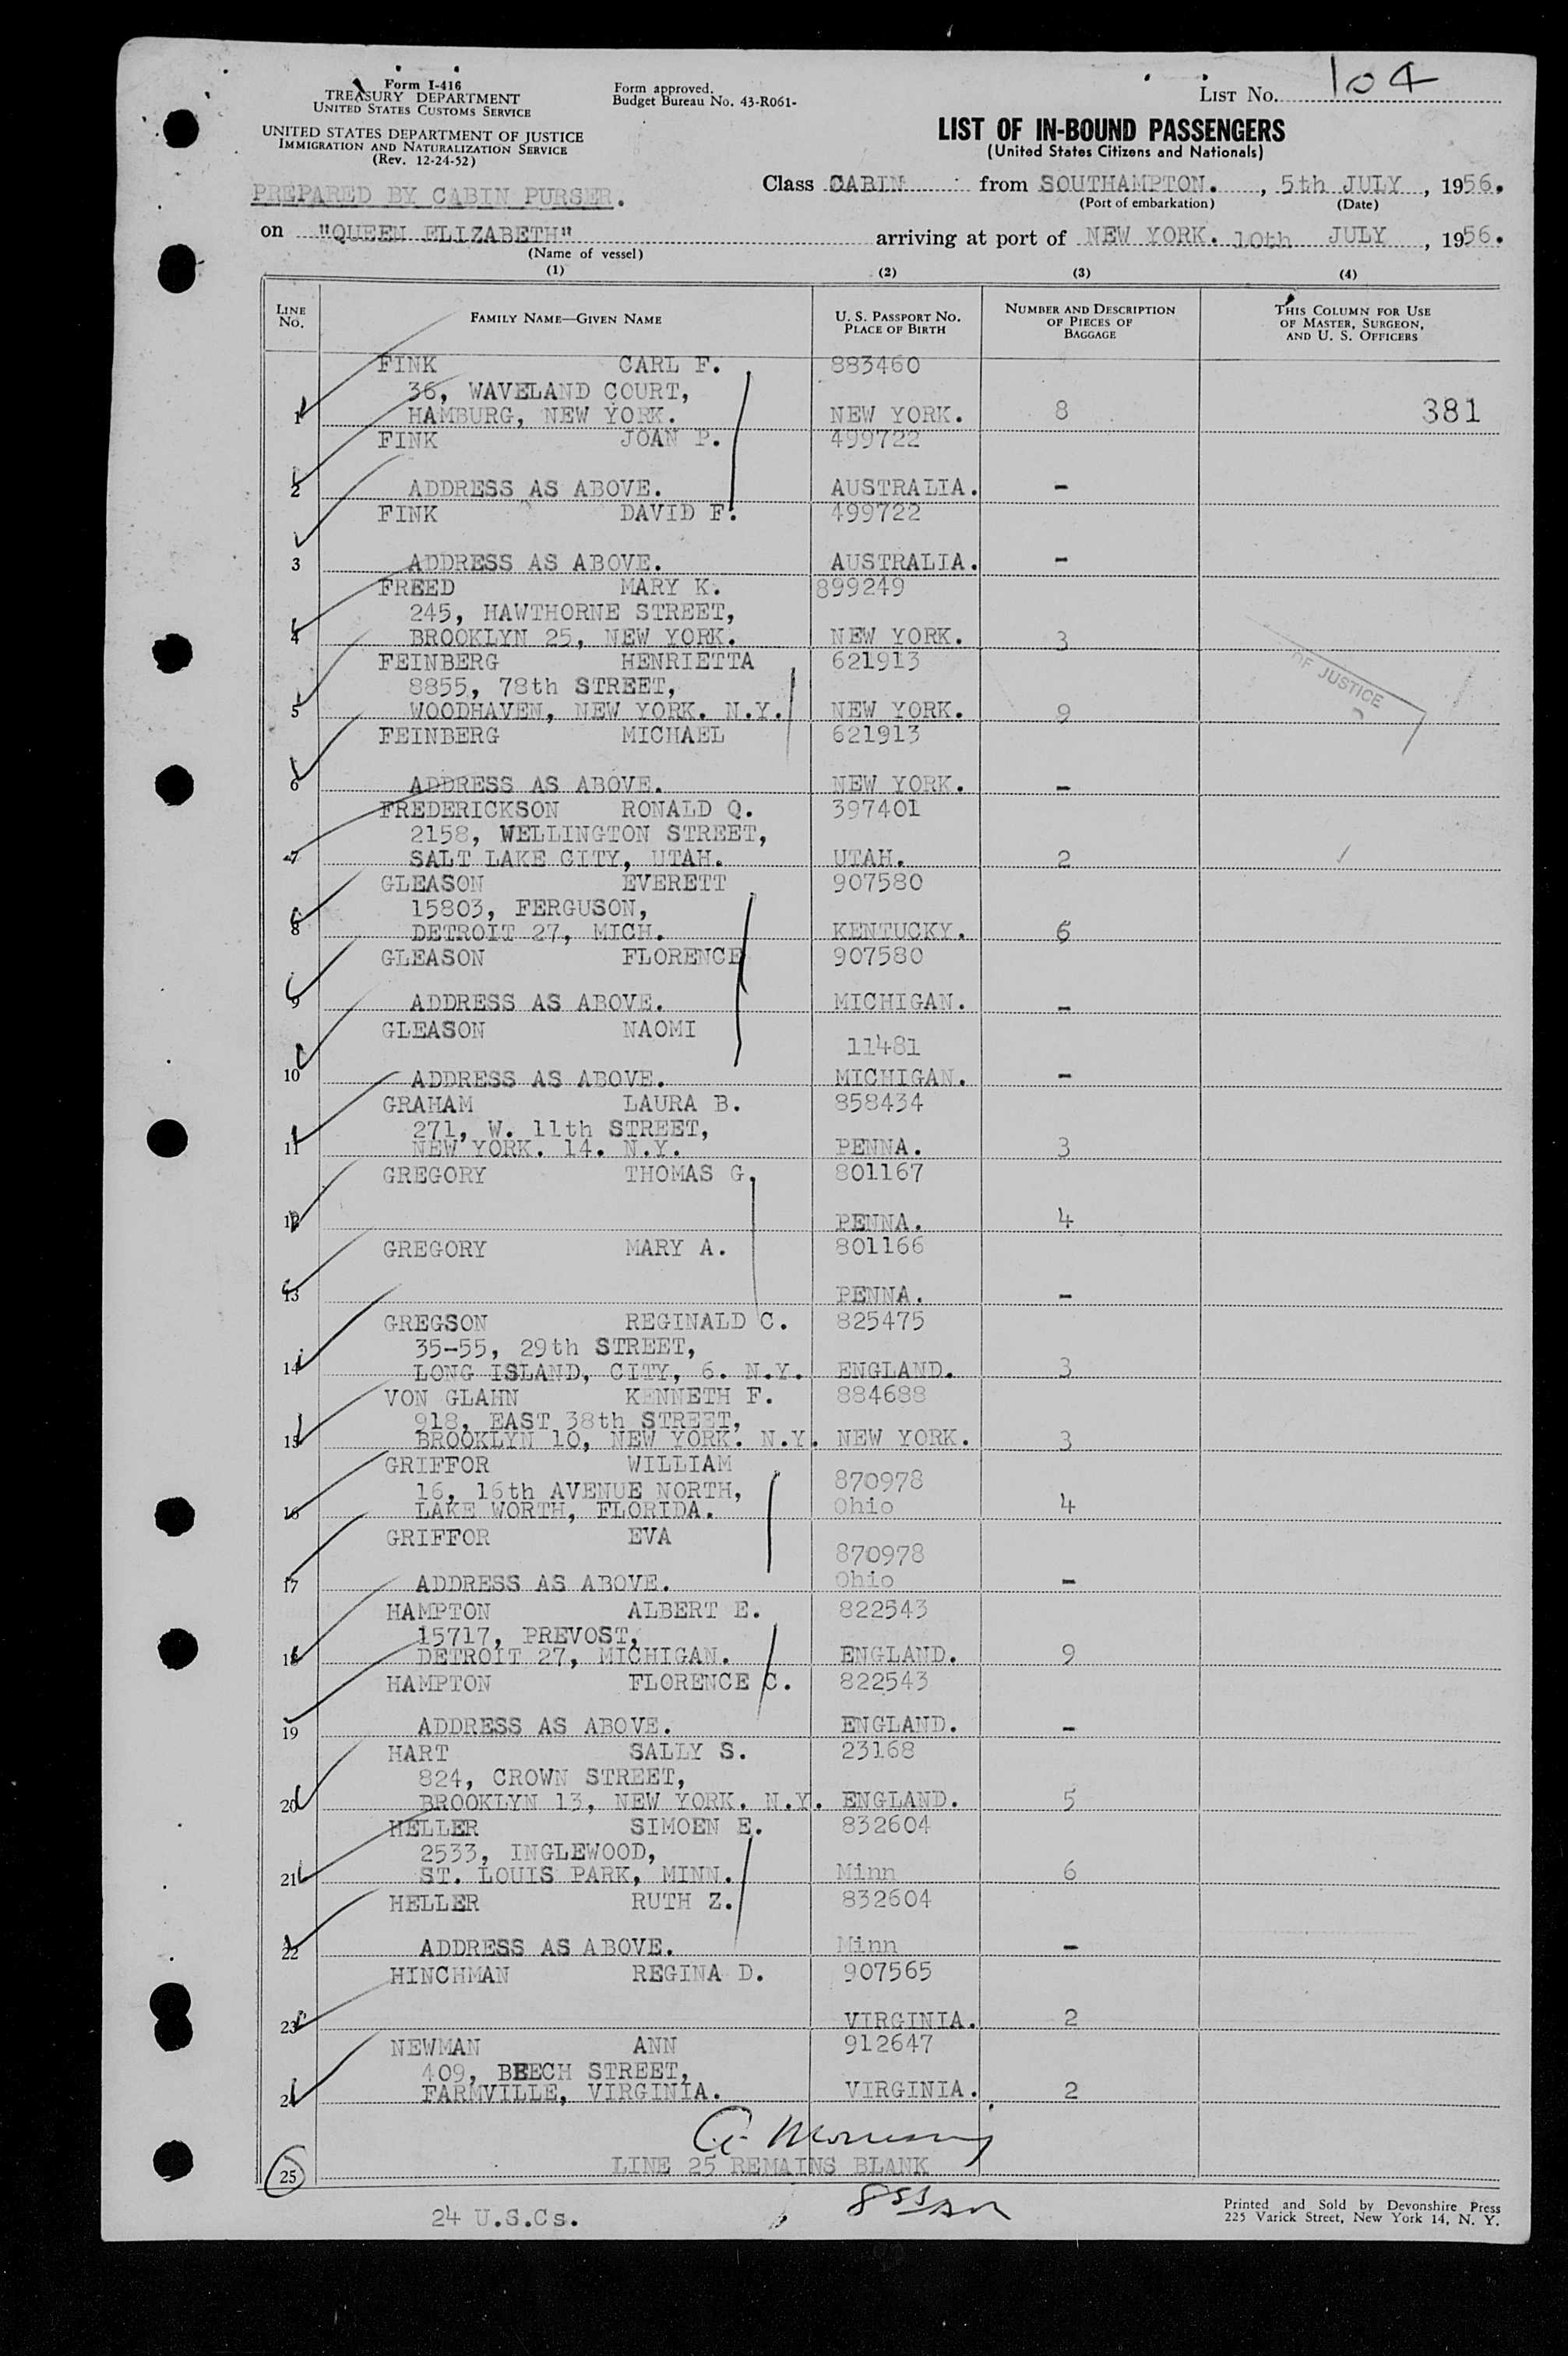 Form I-416
TREASURY DEPARTMENT
UNITED STATES CUSTOMS SERVICE
UNITED STATES DEPARTMENT OF JUSTICE
IMMIGRATION AND NATURALIZATION SERVICE
(Rev. 12-24-52)
Form approved.
Budget Bureau No. 43-R061-
LIST No. 104
LIST OF IN-BOUND PASSENGERS
(United States Citizens and Nationals)
PREPARED BY CABIN PURSER.
Class CABIN from SOUTHAMPTON. , 5th JULY , 1956.
(Port of embarkation) (Date)
on "QUEEN ELIZABETH" arriving at port of NEW YORK. 10th JULY , 1956.
(Name of vessel)
(1) (2) (3) (4)
LINE No. FAMILY NAME—GIVEN NAME U. S. PASSPORT NO. PLACE OF BIRTH NUMBER AND DESCRIPTION OF PIECES OF BAGGAGE THIS COLUMN FOR USE OF MASTER, SURGEON, AND U. S. OFFICERS
FINK CARL F. 883460
36, WAVELAND COURT,
1 HAMBURG, NEW YORK. NEW YORK. 8 381
FINK JOAN P. 499722
2 ADDRESS AS ABOVE. AUSTRALIA. -
FINK DAVID F. 499722
3 ADDRESS AS ABOVE. AUSTRALIA. -
FREED MARY K. 899249
245, HAWTHORNE STREET,
4 BROOKLYN 25, NEW YORK. NEW YORK. 3
FEINBERG HENRIETTA 621913
8855, 78th STREET,
OF JUSTICE
5 WOODHAVEN, NEW YORK. N.Y. NEW YORK. 9
FEINBERG MICHAEL 621913
6 ADDRESS AS ABOVE. NEW YORK. -
FREDERICKSON RONALD Q. 397401
2158, WELLINGTON STREET,
7 SALT LAKE CITY, UTAH. UTAH. 2
GLEASON EVERETT 907580
15803, FERGUSON,
8 DETROIT 27, MICH. KENTUCKY. 6
GLEASON FLORENCE 907580
9 ADDRESS AS ABOVE. MICHIGAN. -
GLEASON NAOMI
11481
10 ADDRESS AS ABOVE. MICHIGAN. -
GRAHAM LAURA B. 858434
271, W. 11th STREET,
11 NEW YORK. 14. N.Y. PENNA. 3
GREGORY THOMAS G. 801167
12 PENNA. 4
GREGORY MARY A. 801166
13 PENNA. -
GREGSON REGINALD C. 825475
35-55, 29th STREET,
14 LONG ISLAND, CITY, 6. N.Y. ENGLAND. 3
VON GLAHN KENNETH F. 884688
918, EAST 38th STREET,
15 BROOKLYN 10, NEW YORK. N.Y. NEW YORK. 3
GRIFFOR WILLIAM
16, 16th AVENUE NORTH, 870978
16 LAKE WORTH, FLORIDA. Ohio 4
GRIFFOR EVA
870978
17 ADDRESS AS ABOVE. Ohio -
HAMPTON ALBERT E. 822543
15717, PREVOST,
18 DETROIT 27, MICHIGAN. ENGLAND. 9
HAMPTON FLORENCE C. 822543
19 ADDRESS AS ABOVE. ENGLAND. -
HART SALLY S. 23168
824, CROWN STREET,
20 BROOKLYN 13, NEW YORK. N.Y. ENGLAND. 5
HELLER SIMOEN E. 832604
2533, INGLEWOOD,
21 ST. LOUIS PARK, MINN. Minn 6
HELLER RUTH Z. 832604
22 ADDRESS AS ABOVE. Minn -
HINCHMAN REGINA D. 907565
23 VIRGINIA. 2
NEWMAN ANN 912647
409, BEECH STREET,
24 FARMVILLE, VIRGINIA. VIRGINIA. 2
25 LINE 25 REMAINS BLANK
24 U.S.Cs.
Printed and Sold by Devonshire Press
225 Varick Street, New York 14, N. Y.